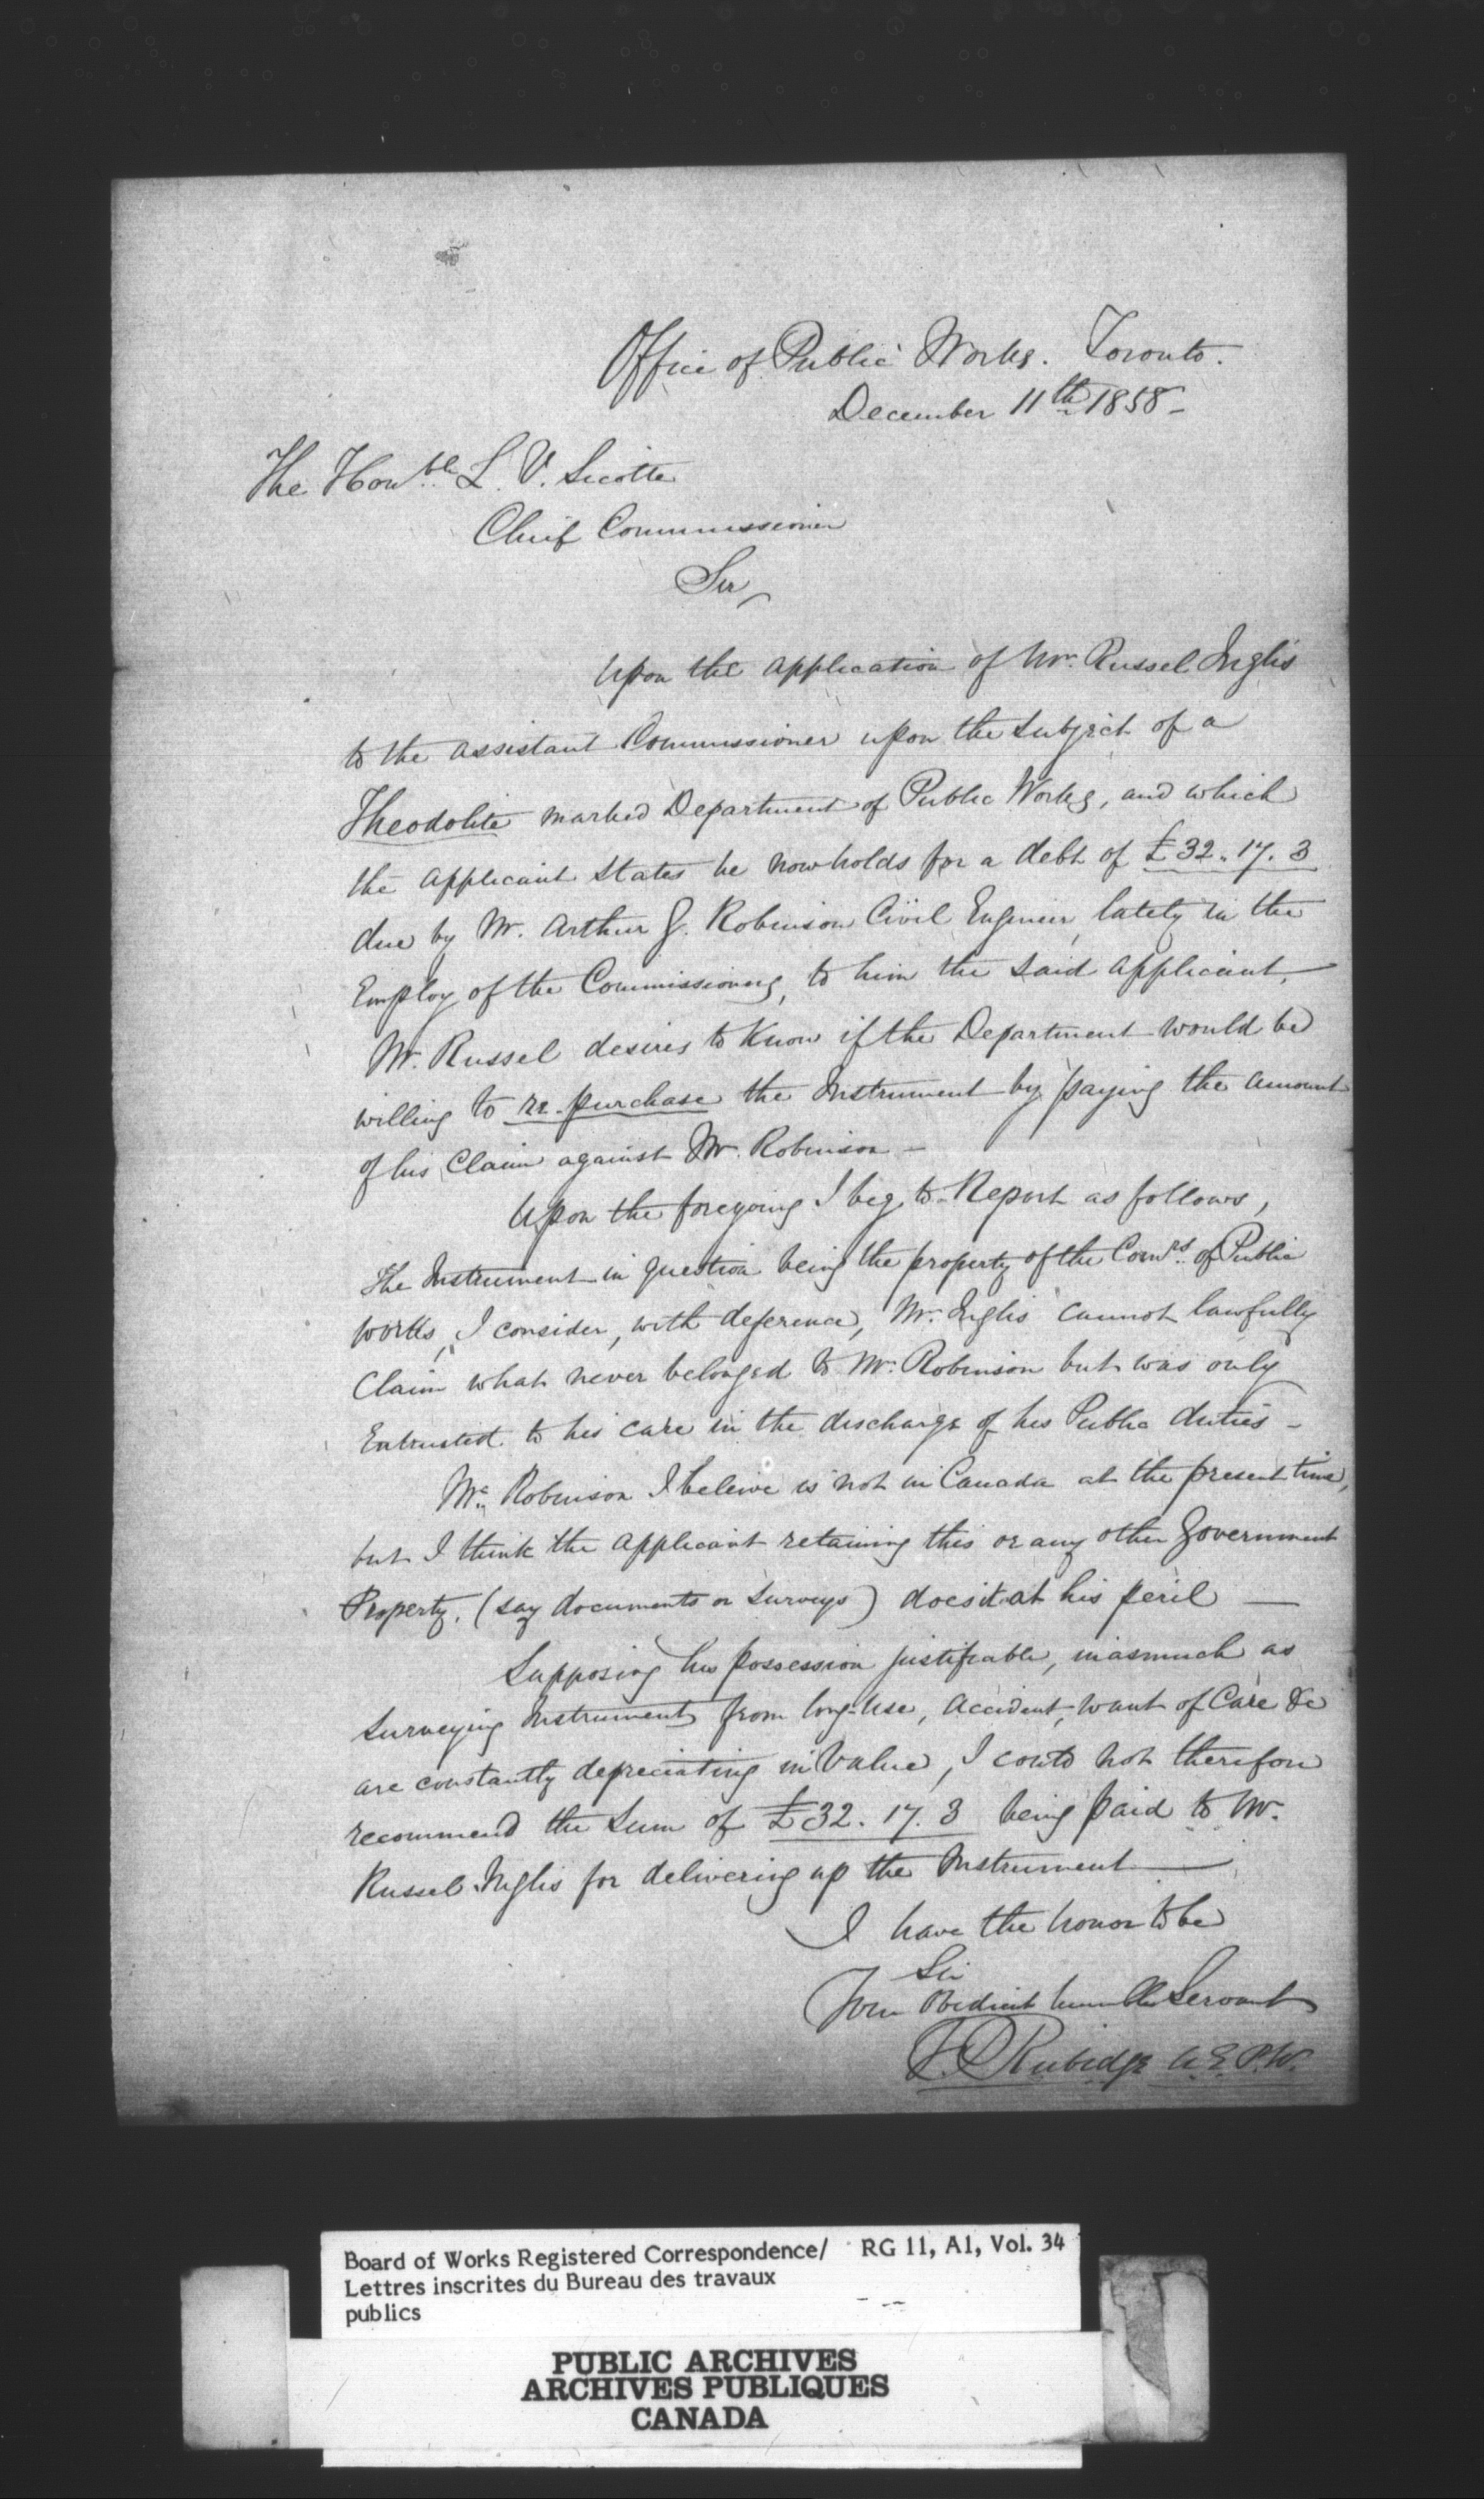 Office of Public Works. Toronto.
December 11th 1858-
The Honble L. V. Sicotte
Chief Commissioner
Sir,
Upon the application of Mr. Russel Inglis
to the assistant Commissioner upon the subject of a
Theodolite marked Department of Public Works, and which
the applicant states he now holds for a debt of £32.17.3
due by Mr. Arthur G. Robinson Civil Engineer, lately in the
Employ of the Commissioners, to him the said applicant,—
Mr. Russel desires to Know if the Department would be
willing to re-purchase the Instrument by paying the amount
of his Claim against Mr. Robinson—
Upon the foregoing I beg to Report as follows,
The Instrument in question being the property of the Comrs. of Public
Works, I consider, with deference, Mr. Inglis cannot lawfully
Claim what never belonged to Mr. Robinson but was only
Entrusted to his care in the discharge of his Public duties—
Mr. Robinson I beleive is not in Canada at the present time,
but I think the applicant retaining this or any other Government
Property, (say documents or surveys) does it at his peril —
Supposing his possession justifiable, inasmuch as
surveying Instruments from long use, accident, want of Care &c
are constantly depreciating in Value, I could not therefore
recommend the sum of £32.17.3 being paid to Mr.
Russel Inglis for delivering up the Instrument—
I have the honor to be
Sir
Your Obedient humble Servant
F. P. Rubidge A.E.P.W.
Board of Works Registered Correspondence/ RG 11, A1, Vol. 34
Lettres inscrites du Bureau des travaux
publics
PUBLIC ARCHIVES
ARCHIVES PUBLIQUES
CANADA